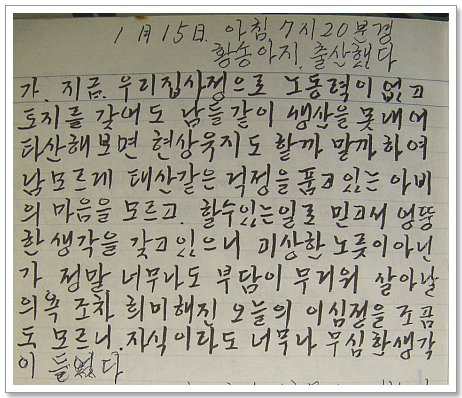 1月15日. 아침.7시20분경
황송아지. 출산했다
가. 지금. 우리집사정으로 노동력이 없고
토지를 갖어도 남들같이 생산을 못내여
타산해보면 현상유지도 할까 말까하여
남모르게 태산같은 걱정을 품고있는 아비
의 마음을 모르고. 할수있는일로 믿고서 엉뚱
한 생각을 갖고있으니 괴상한 노릇이아닌
가 정말 너무나도 부담이 무거워 살아날
의욕 조차 희미해진 오늘의 이심정을 조곰
도 모르니. 자식이라도 너무나 무심한생각
이 들었다